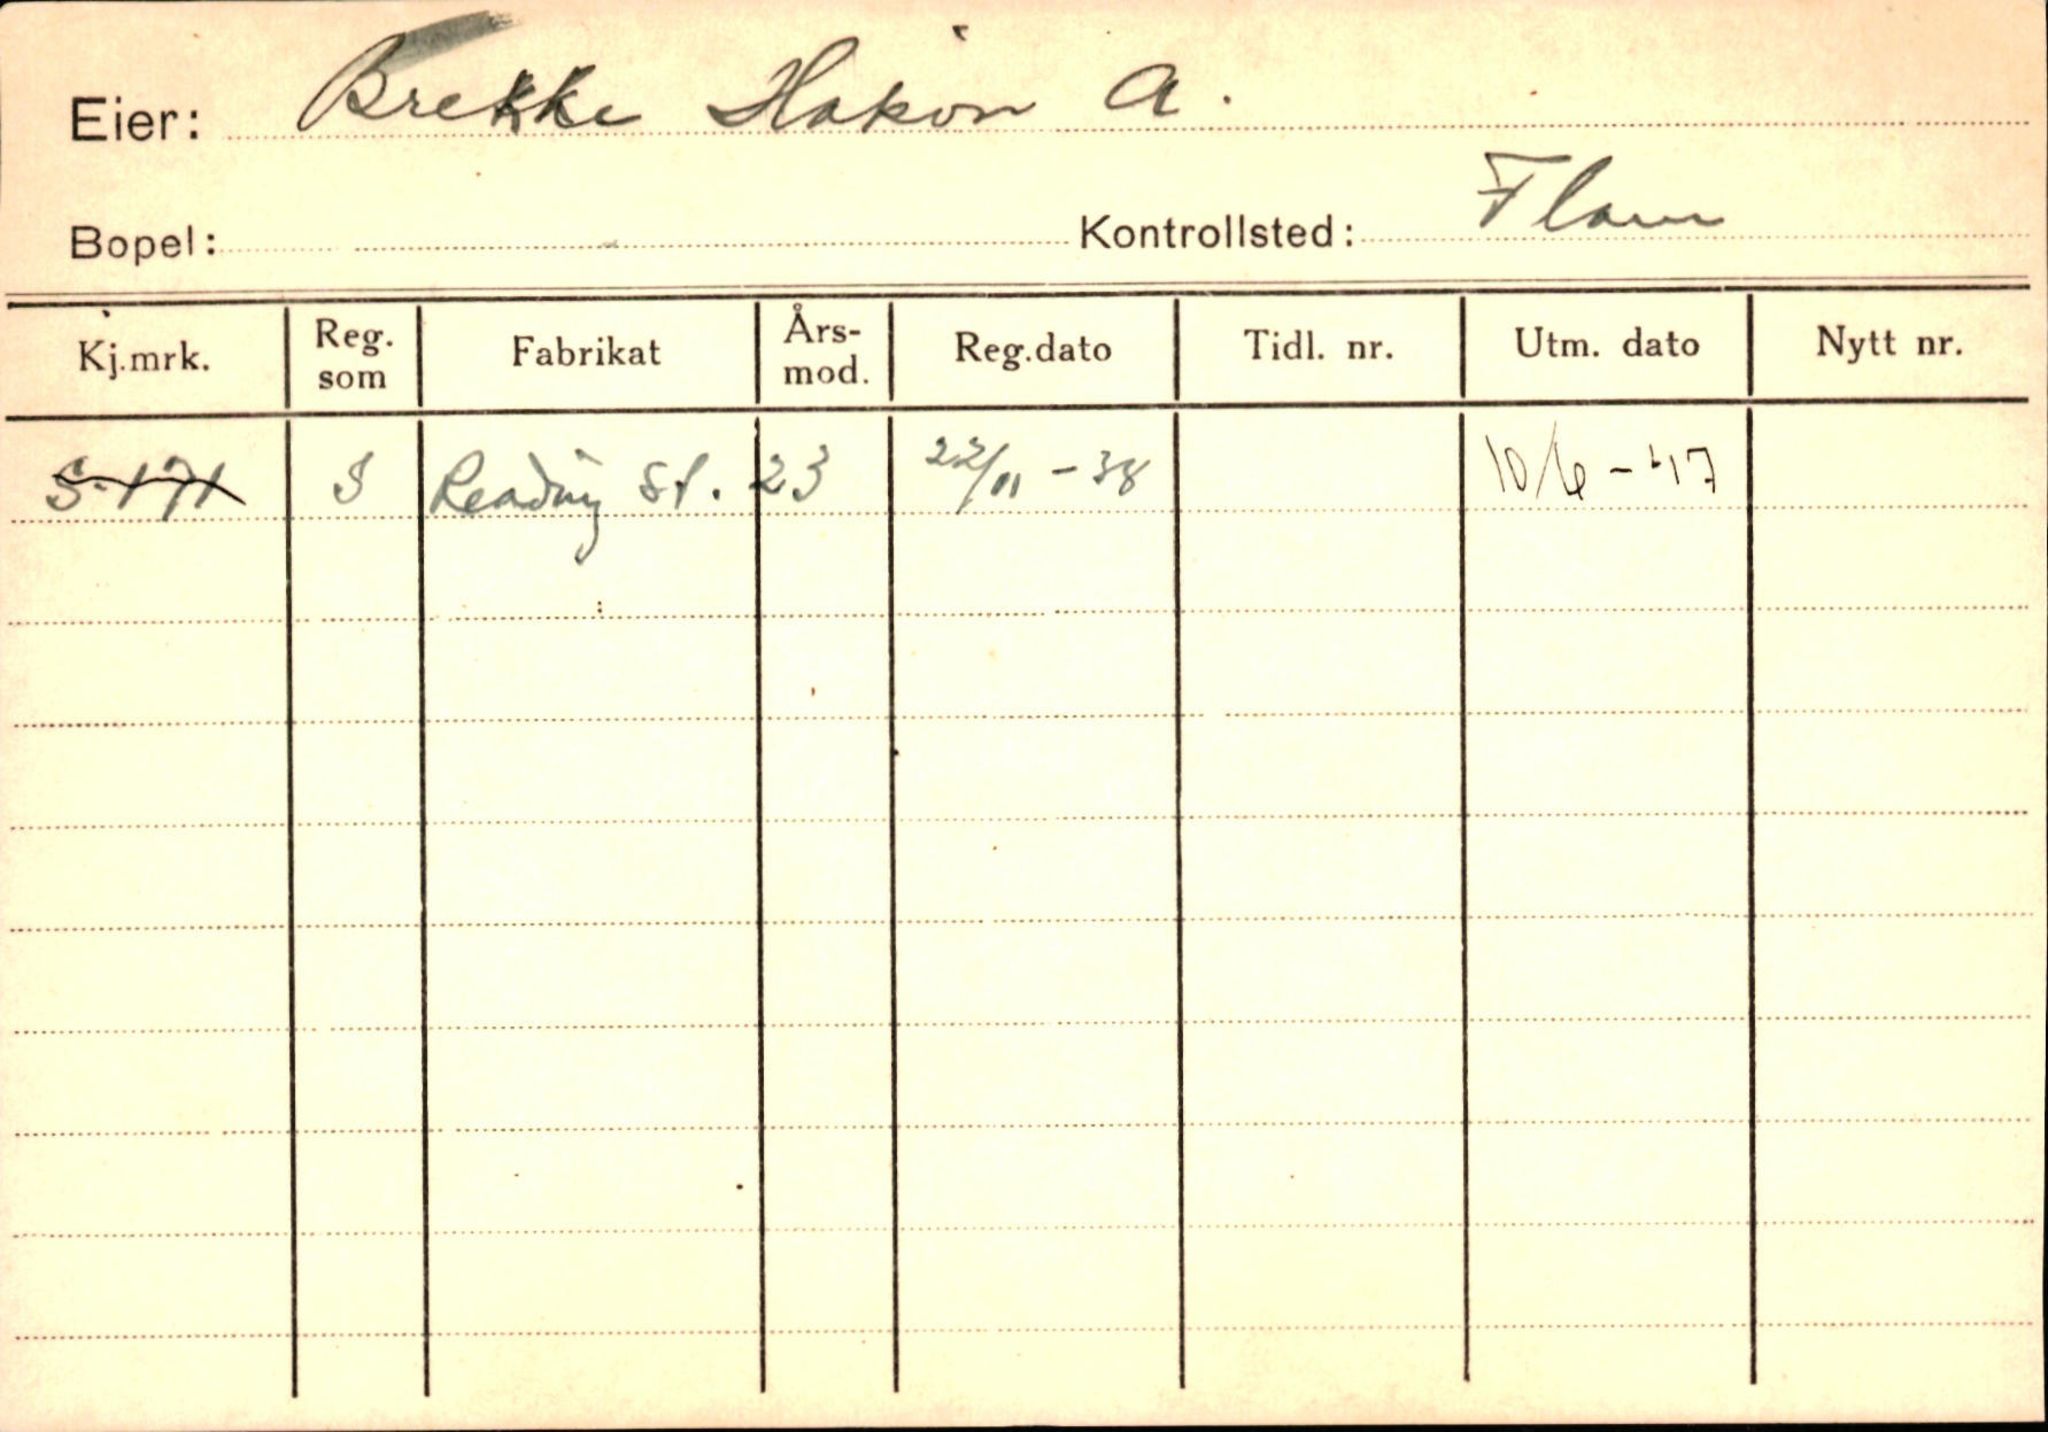 Eier: Brekke Håkon A.
Bopel: Kontrollsted: Flåm
Kj.mrk. Reg. som Fabrikat Års-mod. Reg.dato Tidl. nr. Utm. dato Nytt nr.
S-171 S Reading St. 23 22/11 - 38 10/6 - 47